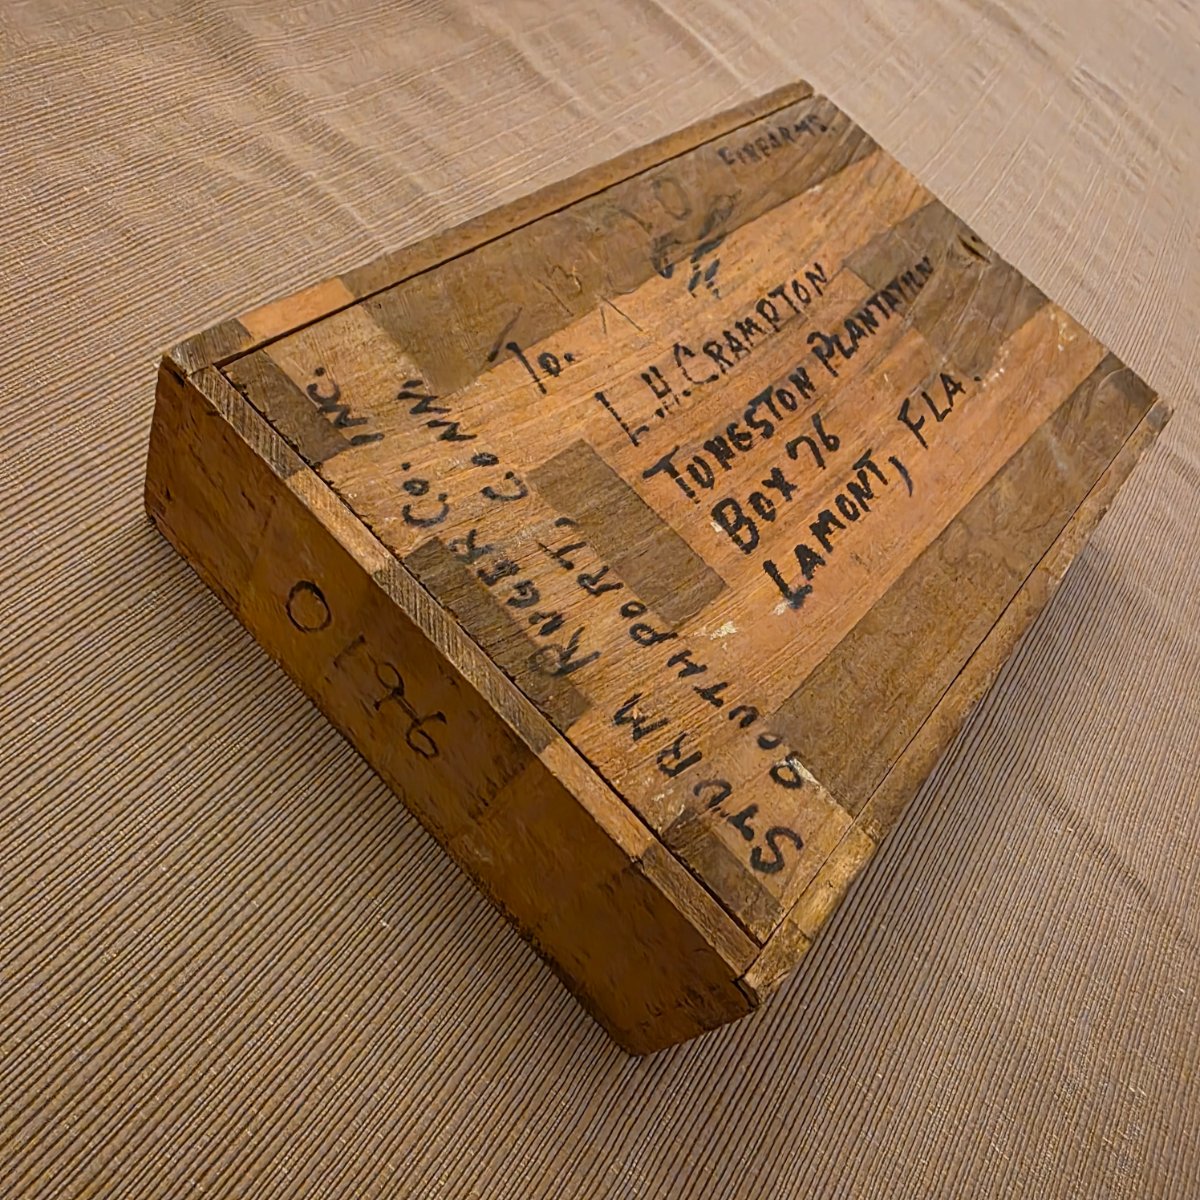 FIREARMS.
To.
L.H. CRAMPTON
TUNGSTON PLANTATION
BOX 76
LAMONT, FLA.
STURM RUGER CO. INC.
SOUTHPORT. CONN.